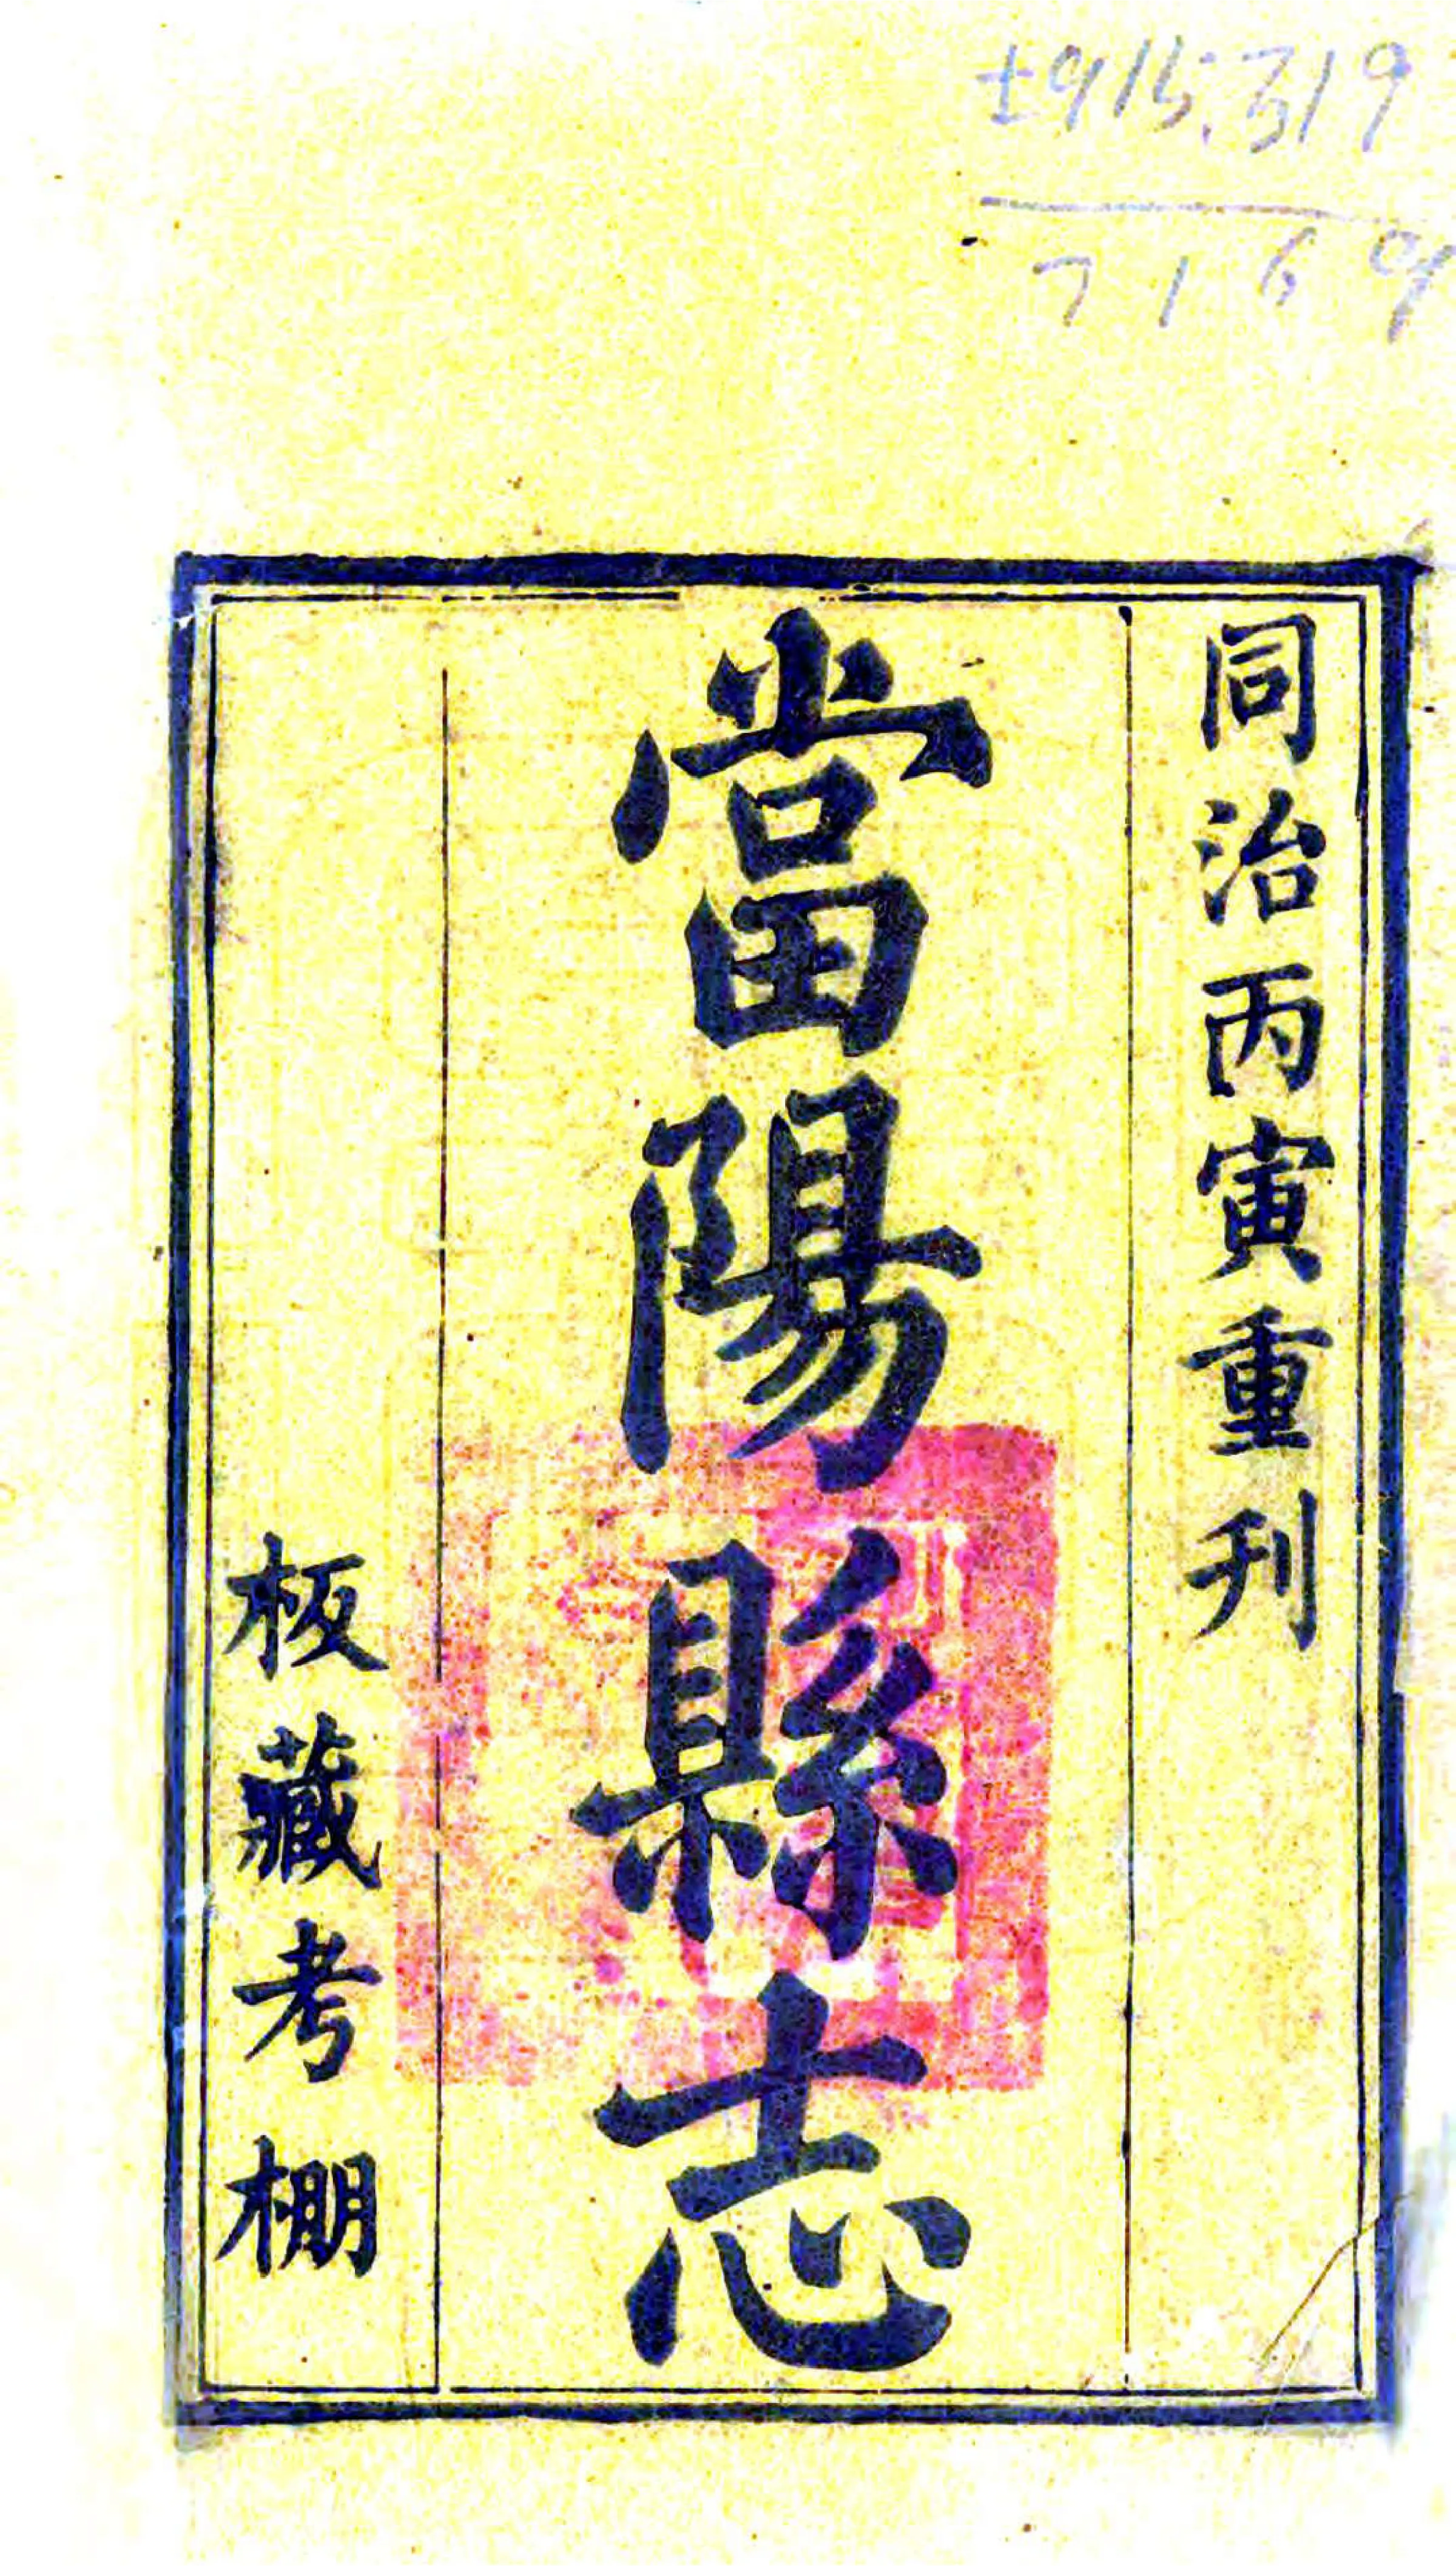 ±915.319
7169
同治丙寅重刋
當陽縣志
板藏考棚